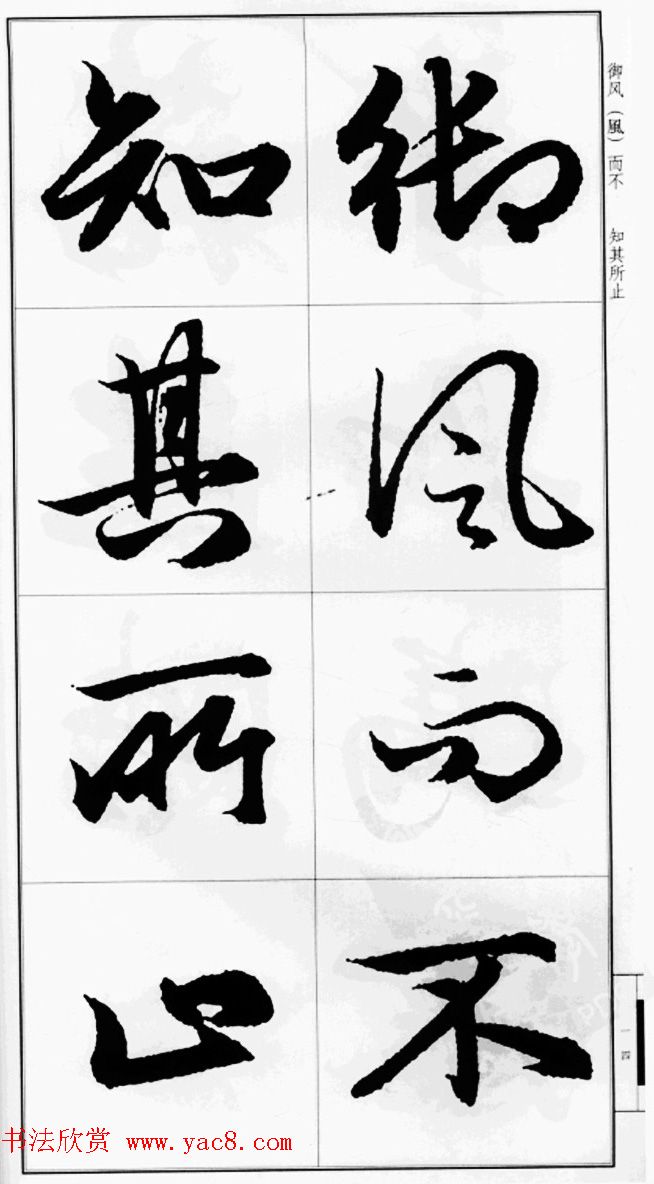 御风而不
知其所止
御风（風）而不 知其所止
一四
书法欣赏 www.yac8.com